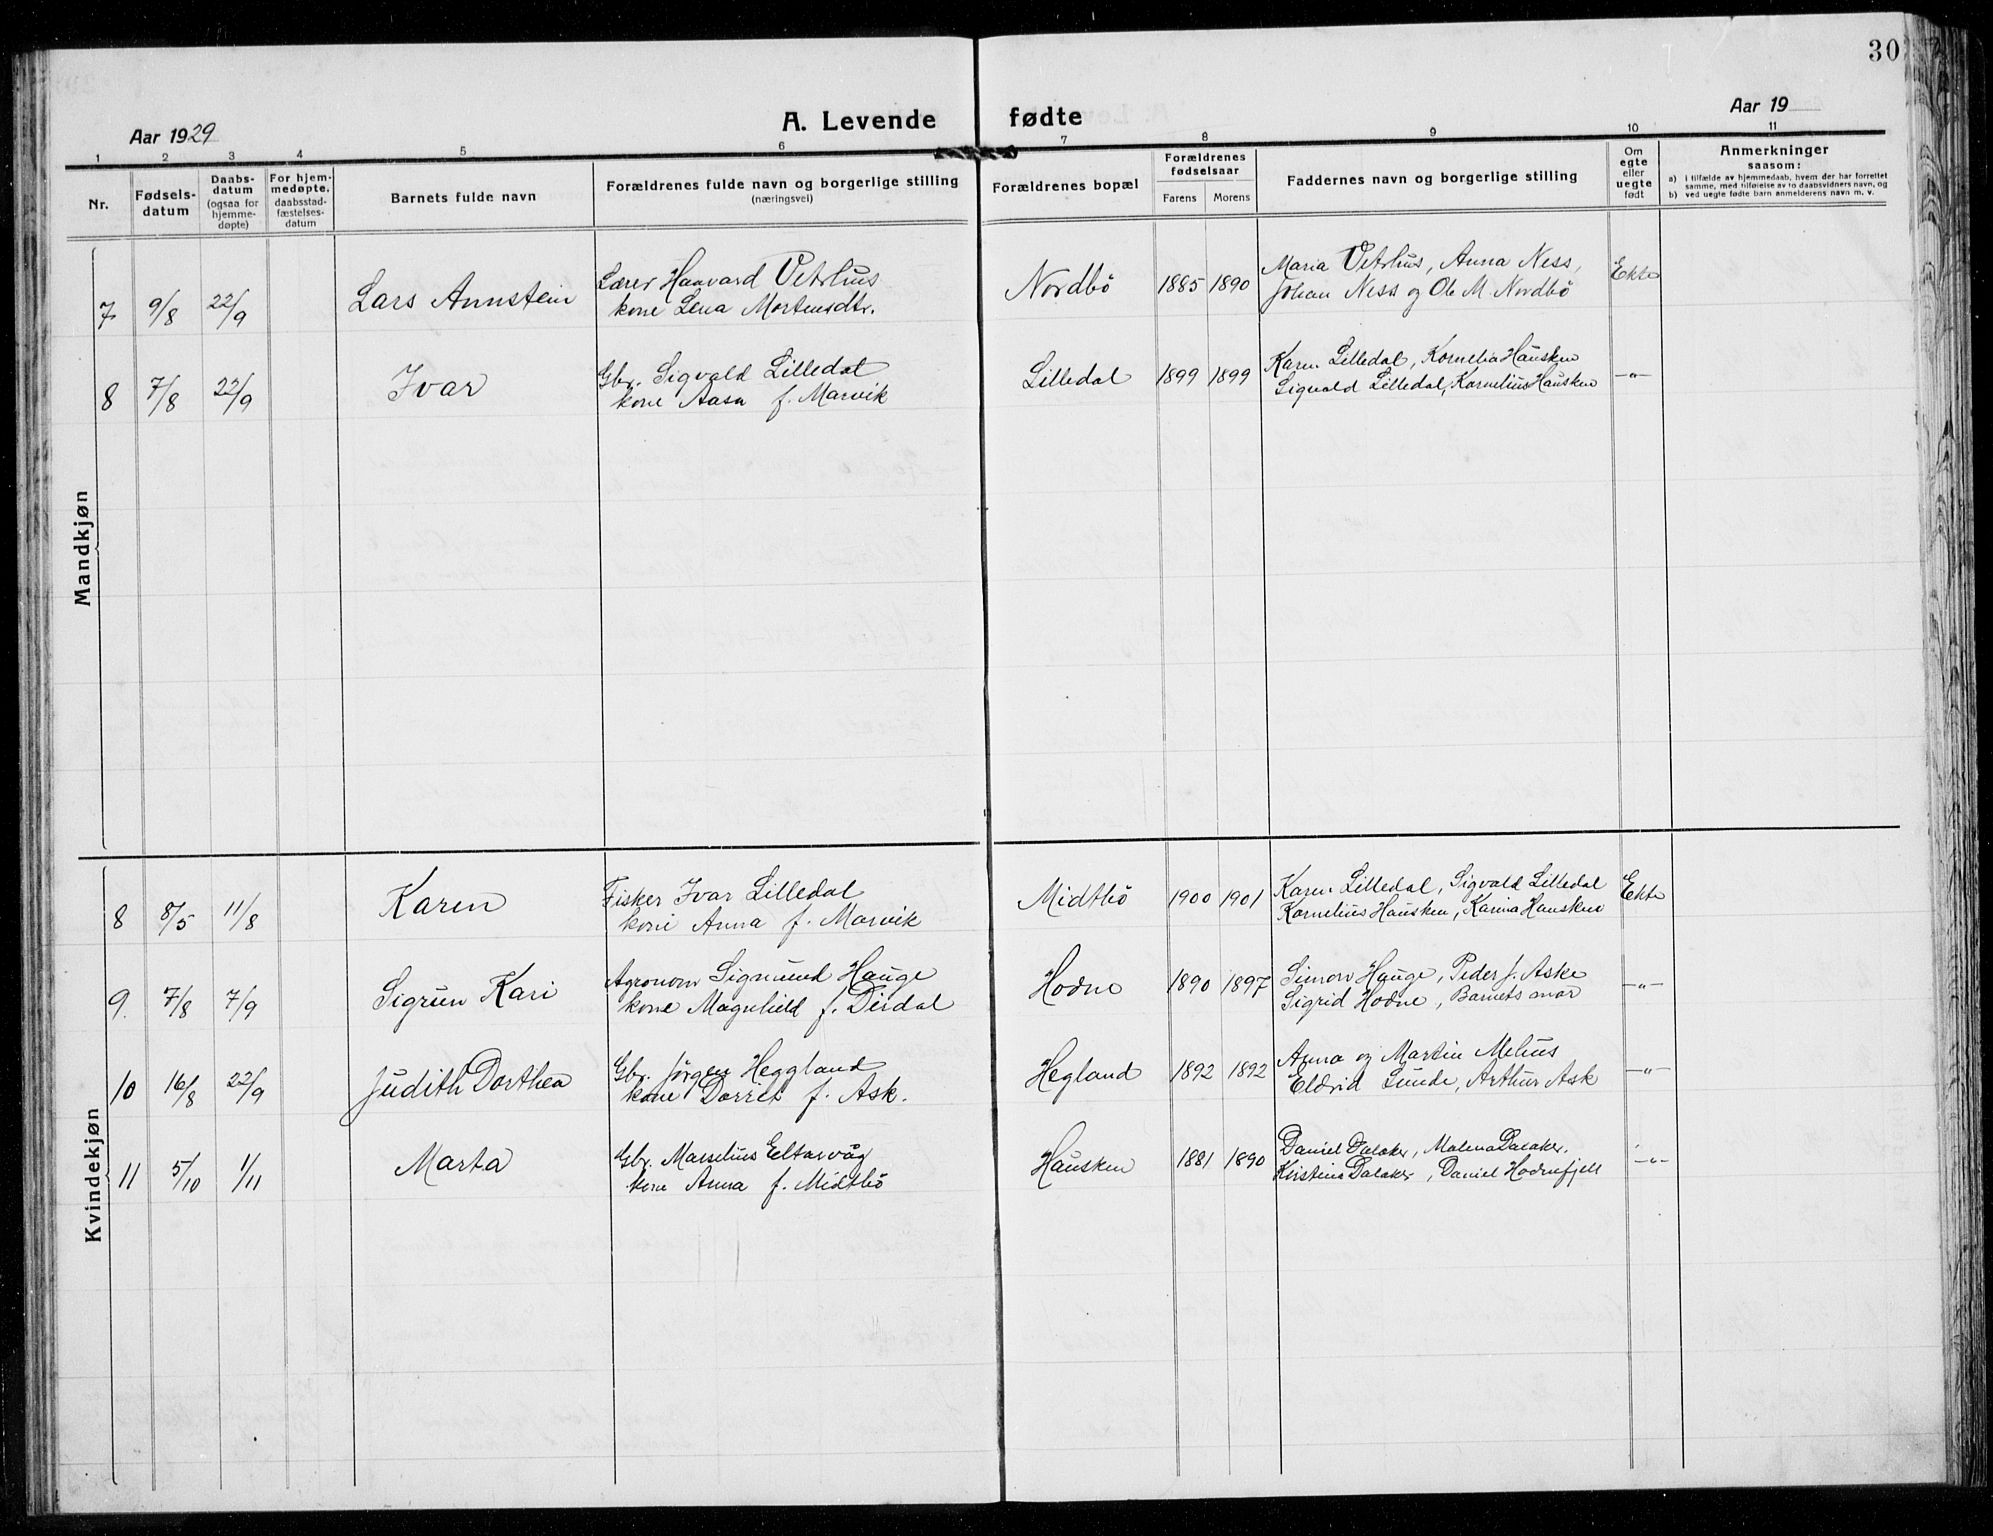 30
Aar 1929
A. Levende fødte
Aar 19
1 2 3 4 5 6 7 8 9 10 11
Nr.
Fødsels-
datum
Daabs-
datum
(ogsaa for
hjemme-
døpte)
For hjem-
medøpte,
daabsstad-
fæstelses-
datum
Barnets fulde navn
Forældrenes fulde navn og borgerlige stilling
(næringsvei)
Forældrenes bopæl
Forældrenes
fødselsaar
Farens Morens
Faddernes navn og borgerlige stilling
Om
egte
eller
uegte
født
Anmerkninger
saasom:
a) i tilfælde av hjemmedaab, hvem der har forrettet
samme, med tilføielse av to daabsvidners navn, og
b) ved uegte fødte barn anmelderens navn m. v.
Mandkjøn
7 9/8 22/9 Lars Annstein
Lærer Haavard Vetrhus
kone Lena Mortensdtr.
Nordbö 1885 1890
Maria Vetrhus, Anna Ness,
Johan Ness og Ole M. Nordbö
Ekte
8 7/8 22/9 Ivar
Gbr. Sigvald Lilledal
kone Aasa f. Marvik
Lilledal 1899 1899
Karen Lilledal, Kornelia Hausken
Sigvald Lilledal, Kornelius Hausken
-"-
Kvindekjøn
8 8/5 11/8 Karen
Fisker Ivar Lilledal
kone Anna f. Marvik
Midtbö 1900 1901
Karen Lilledal, Sigvald Lilledal
Kornelius Hausken, Karina Hausken
Ekte
9. 7/8 7/9 Sigrun Kari
Agronom Sigmund Hauge
kone Magnhild f. Dirdal
Hodne 1890 1897
Simon Hauge, Peder J. Aske
Sigrid Hodne, Barnets mor
-"-
10 16/8 22/9 Judith Dorthea
Gbr. Jörgen Heggland
kone Dorrit f. Ask.
Hegland 1892 1892
Anna og Martin Melhus
Eldrid Lunde, Arthur Ask
-"-
11 5/10 1/11 Marta
Gbr. Marselius Eltarvåg
kone Anna f. Midtbö
Hausken 1881 1890
Daniel Dalaker, Malena Dalaker,
Kirstina Dalaker, Daniel Hodnefjell
-"-